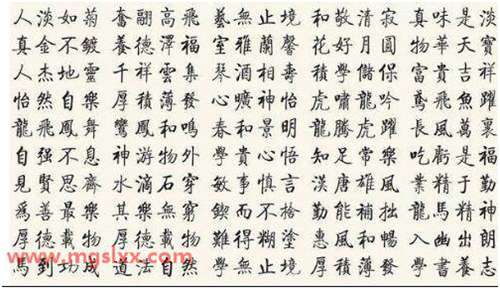 人淡如菊 奮翮高飛 藝無止境 和敬清寂 真味是淡
真金不鍍 養德澤福 室雅蘭馨 花好月圓 物華天寶
人杰地靈 千祥雲集 琴酒相壽 積學儲保 富貴吉祥
怡然自樂 厚積薄發 心曠神怡 虎嘯龍吟 鳶飛魚躍
龍飛鳳舞 鸞鳳和鳴 春和景明 龍騰虎躍 長風萬裏
自强不息 神游物外 學貴心悟 知足常樂 吃虧是福
見賢思齋 水滴石穿 敏事慎言 漢唐雄風 業精于勤
爲善最樂 其樂無窮 鍥而不捨 勤能補拙 龍馬精神
厚德載物 厚德載物 難得糊塗 惠風和暢 入幽出朗
馬到功成 道法自然 學無止境 厚積薄發 學書養志
www.mgslxx.com